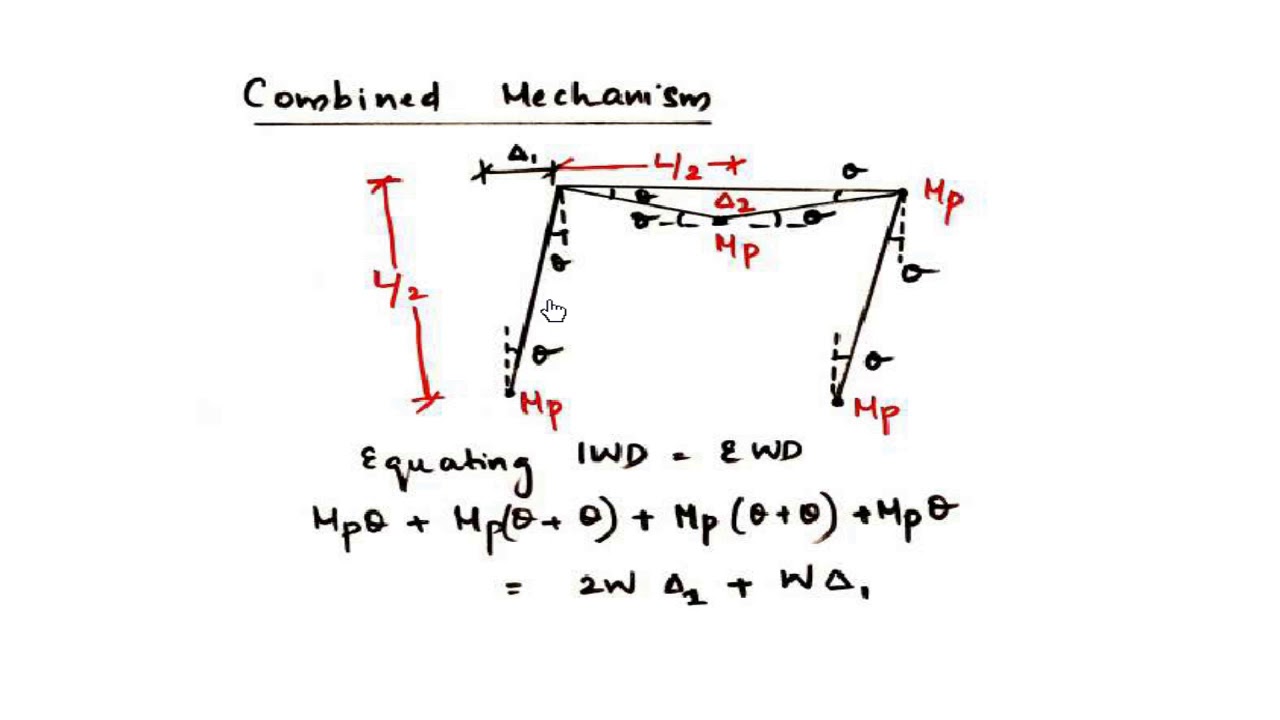 Combined Mechanism
Δ₁
L/2
θ
θ
Δ₂
Mp
θ
θ
Mp
θ
θ
L/2
θ
θ
Mp
Mp
Equating IWD = EWD
Mpθ + Mp(θ + θ) + Mp (θ+θ) + Mpθ
= 2W Δ₂ + WΔ₁